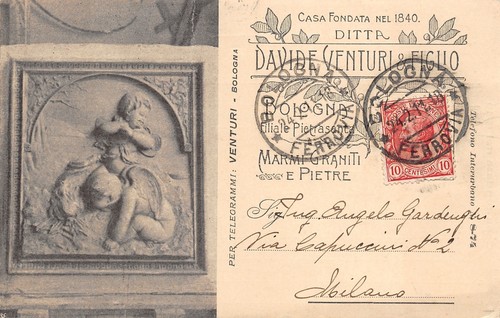 CASA FONDATA NEL 1840.
DITTA
DAVIDE VENTURI & FIGLIO
BOLOGNA
Filiale Pietrasanta
MARMI-GRANITI
E PIETRE
PER TELEGRAMMI: VENTURI - BOLOGNA
Telefono Interurbano 8-74
BOLOGNA
FERROVIA
BOLOGNA
FERROVIA
10 CENTESIMI 10
Sig. Ing. Angelo Gardenghi
Via Cappuccini No 2
Milano